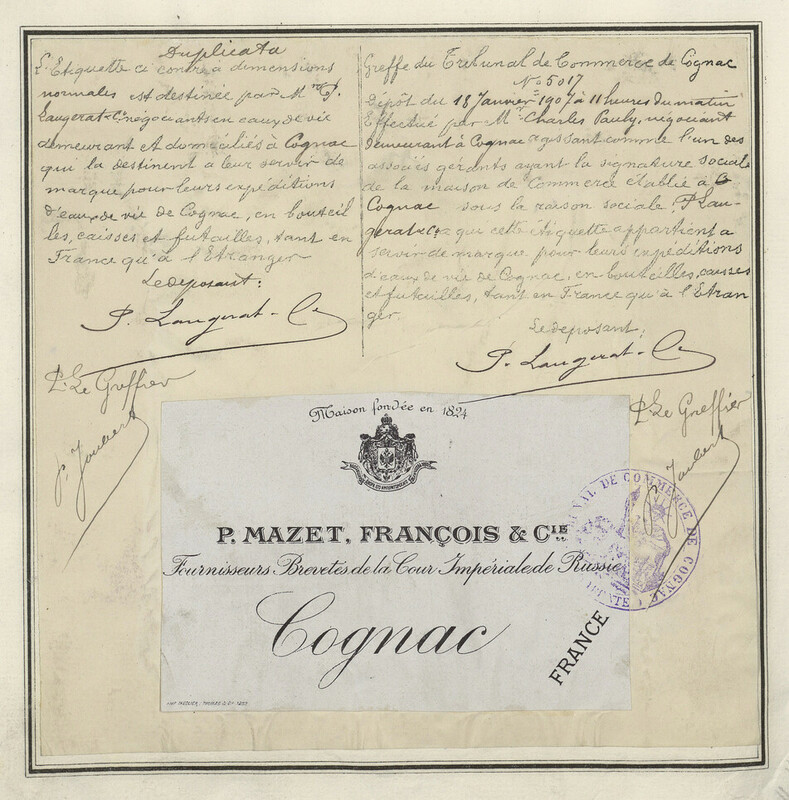 Duplicata
L'Etiquette ci contre à dimensions
normales est destinée par M
Laugerat & Cie négociants en eaux de vie
demeurant et domiciliés à Cognac
qui la destinent à leur servir de
marque pour leurs expéditions
d'eaux de vie de Cognac, en bouteil
les, caisses et futailles, tant en
France qu'à l'Etranger
Le deposant:
P. Laugerat & Cie
P. Le Greffier
P. Joubert
Greffe du Tribunal de Commerce de Cognac
No 5017
Dépôt du 18 Janvier 1907 à 11 heures du matin
Effectué par Mr Charles Pauly, négociant
demeurant à Cognac agissant comme l'un des
associés gérants ayant la signature sociale
de la maison de Commerce établie à
Cognac sous la raison sociale: P. Lau-
gerat & Cie que cette étiquette appartient a
servir de marque pour leurs expéditions
d'eaux de vie de Cognac, en bouteilles, caisses
et futailles, tant en France qu'à l'Etran
ger.
Le deposant:
P. Laugerat & Cie
P. Le Greffier
Joubert
Maison fondée en 1824
P. MAZET, FRANÇOIS & CIE.
Fournisseurs Brevetés de la Cour Impériale de Russie
Cognac
FRANCE
TRIBUNAL DE COMMERCE DE COGNAC